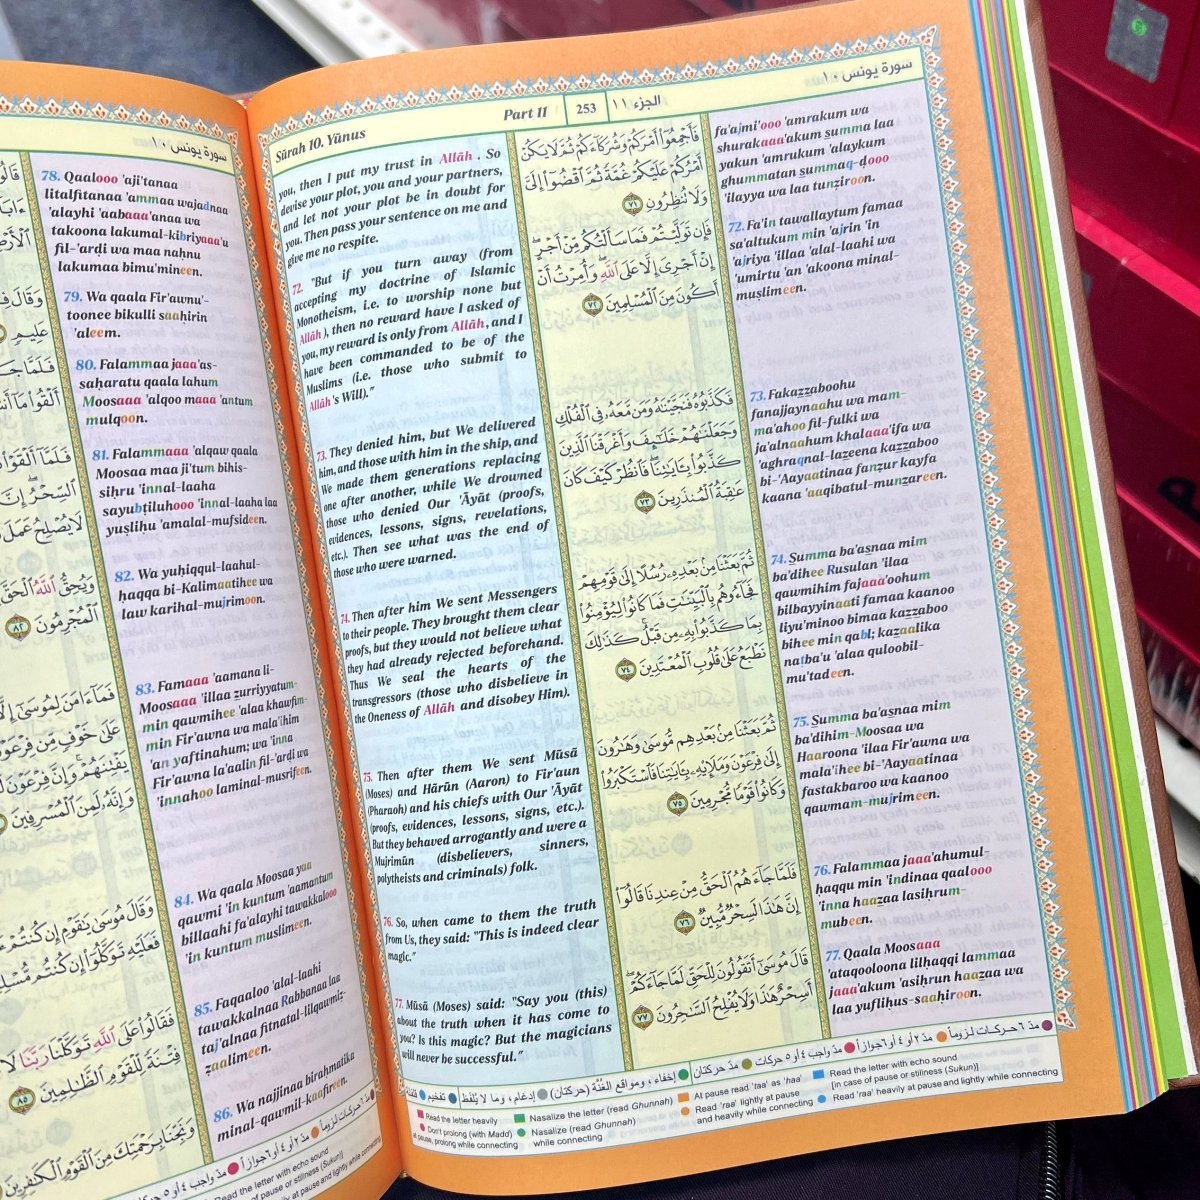 سورة يونس ١٠
78. Qaalooo 'aji'tanaa
litalfitanaa 'ammaa wajadnaa
'alayhi 'aabaaa'anaa wa
takoona lakumal-kibriyaaa'u
fil-'arḍi wa maa naḥnu
lakumaa bimu'mineen.
79. Wa qaala Fir'awnu'-
toonee bikulli saaḥirin
'aleem.
80. Falammaa jaaa'as-
saḥaratu qaala lahum
Moosaaa 'alqoo maaa 'antum
mulqoon.
81. Falammaaa 'alqaw qaala
Moosaa maa ji'tum bihis-
siḥru 'innal-laaha
sayubṭiluhooo 'innal-laaha laa
yuṣliḥu 'amalal-mufsideen.
82. Wa yuḥiqqul-laahul-
ḥaqqa bi-Kalimaatihee wa
law karihal-mujrimoon.
83. Famaaa 'aamana li-
Moosaaa 'illaa zurriyyatum-
min qawmihee 'alaa khawfim-
min Fir'awna wa mala'ihim
'an yaftinahum; wa 'inna
Fir'awna la'aalin fil-'arḍi wa
'innahoo laminal-musrifeen.
84. Wa qaala Moosaa yaa
qawmi 'in kuntum 'aamantum
billaahi fa'alayhi tawakkalooo
'in kuntum muslimeen.
85. Faqaaloo 'alal-laahi
tawakkalnaa Rabbanaa laa
taj'alnaa fitnatal-lilqawmiz-
ẓaalimeen.
86. Wa najjinaa biraḥmatika
minal-qawmil-kaafireen.
Sūrah 10. Yūnus
Part 11
253
الجزء ١١
سورة يونس ١٠
you, then I put my trust in Allāh . So
devise your plot, you and your partners,
and let not your plot be in doubt for
you. Then pass your sentence on me and
give me no respite.
72. "But if you turn away (from
accepting my doctrine of Islamic
Monotheism, i.e. to worship none but
Allāh ), then no reward have I asked of
you, my reward is only from Allāh, and I
have been commanded to be of the
Muslims (i.e. those who submit to
Allāh's Will)."
73. They denied him, but We delivered
him, and those with him in the ship, and
We made them generations replacing
one after another, while We drowned
those who denied Our 'Āyāt (proofs,
evidences, lessons, signs, revelations,
etc.). Then see what was the end of
those who were warned.
74. Then after him We sent Messengers
to their people. They brought them clear
proofs, but they would not believe what
they had already rejected beforehand.
Thus We seal the hearts of the
transgressors (those who disbelieve in
the Oneness of Allāh and disobey Him).
75. Then after them We sent Mūsā
(Moses) and Hārūn (Aaron) to Fir'aun
(Pharaoh) and his chiefs with Our 'Āyāt
(proofs, evidences, lessons, signs, etc.).
But they behaved arrogantly and were a
Mujrimūn (disbelievers, sinners,
polytheists and criminals) folk.
76. So, when came to them the truth
from Us, they said: "This is indeed clear
magic."
77. Mūsā (Moses) said: "Say you (this)
about the truth when it has come to
you? Is this magic? But the magicians
will never be successful."
فَأَجْمِعُوٓا۟ أَمْرَكُمْ وَشُرَكَآءَكُمْ ثُمَّ لَا يَكُنْ
أَمْرُكُمْ عَلَيْكُمْ غُمَّةً ثُمَّ ٱقْضُوٓا۟ إِلَىَّ
وَلَا تُنظِرُونِ ٧١
فَإِن تَوَلَّيْتُمْ فَمَا سَأَلْتُكُم مِّنْ أَجْرٍ ۖ
إِنْ أَجْرِىَ إِلَّا عَلَى ٱللَّهِ ۖ وَأُمِرْتُ أَنْ
أَكُونَ مِنَ ٱلْمُسْلِمِينَ ٧٢
فَكَذَّبُوهُ فَنَجَّيْنَٰهُ وَمَن مَّعَهُۥ فِى ٱلْفُلْكِ
وَجَعَلْنَٰهُمْ خَلَٰٓئِفَ وَأَغْرَقْنَا ٱلَّذِينَ
كَذَّبُوا۟ بِـَٔايَٰتِنَا ۖ فَٱنظُرْ كَيْفَ كَانَ
عَٰقِبَةُ ٱلْمُنذَرِينَ ٧٣
ثُمَّ بَعَثْنَا مِنۢ بَعْدِهِۦ رُسُلًا إِلَىٰ قَوْمِهِمْ
فَجَآءُوهُم بِٱلْبَيِّنَٰتِ فَمَا كَانُوا۟ لِيُؤْمِنُوا۟
بِمَا كَذَّبُوا۟ بِهِۦ مِن قَبْلُ ۚ كَذَٰلِكَ
نَطْبَعُ عَلَىٰ قُلُوبِ ٱلْمُعْتَدِينَ ٧٤
ثُمَّ بَعَثْنَا مِنۢ بَعْدِهِم مُّوسَىٰ وَهَٰرُونَ
إِلَىٰ فِرْعَوْنَ وَمَلَإِي۟هِۦ بِـَٔايَٰتِنَا فَٱسْتَكْبَرُوا۟
وَكَانُوا۟ قَوْمًا مُّجْرِمِينَ ٧٥
فَلَمَّا جَآءَهُمُ ٱلْحَقُّ مِنْ عِندِنَا قَالُوٓا۟
إِنَّ هَٰذَا لَسِحْرٌ مُّبِينٌ ٧٦
قَالَ مُوسَىٰٓ أَتَقُولُونَ لِلْحَقِّ لَمَّا جَآءَكُمْ ۖ
أَسِحْرٌ هَٰذَا وَلَا يُفْلِحُ ٱلسَّٰحِرُونَ ٧٧
fa'ajmi'ooo 'amrakum wa
shurakaaa'akum ṣumma laa
yakun 'amrukum 'alaykum
ghummatan ṣummaq-ḍooo
'ilayya wa laa tunẓiroon.
72. Fa'in tawallaytum famaa
sa'altukum min 'ajrin 'in
'ajriya 'illaa 'alal-laahi wa
'umirtu 'an 'akoona minal-
muṣlimeen.
73. Fakazzaboohu
fanajjaynaahu wa mam-
ma'ahoo fil-fulki wa
ja'alnaahum khalaaa'ifa wa
'aghraqnal-lazeena kazzaboo
bi-'Aayaatinaa fanẓur kayfa
kaana 'aaqibatul-munzareen.
74. Summa ba'aṣnaa mim
ba'dihee Rusulan 'ilaa
qawmihim fajaaa'oohum
bilbayyinaati famaa kaanoo
liyu'minoo bimaa kazzaboo
bihee min qabl; kazaalika
naṭba'u 'alaa quloobil-
mu'tadeen.
75. Summa ba'aṣnaa mim
ba'dihim-Moosaa wa
Haaroona 'ilaa Fir'awna wa
mala'ihee bi-'Aayaatinaa
fastakbaroo wa kaanoo
qawmam-mujrimeen.
76. Falammaa jaaa'ahumul-
ḥaqqu min 'indinaa qaalooo
'inna haazaa lasiḥrum-
mubeen.
77. Qaala Moosaaa
'ataqooloona lilḥaqqi lammaa
jaaa'akum 'asiḥrun haazaa wa
laa yufliḥus-saaḥiroon.
مدّ ٦ حركات لزوماً مدّ ٢ أو ٤ أو ٦ جوازاً مدّ واجب ٤ أو ٥ حركات مدّ حركتان إخفاء، ومواقع الغُنَّة (حركتان) إدغام، وما لا يُلفظ تفخيم
Read the letter heavily
Nasalize the letter (read Ghunnah)
At pause read 'taa' as 'haa'
Read the letter with echo sound
[in case of pause or stillness (Sukun)]
Don't prolong (with Madd)
at pause, prolong while connecting
Nasalize (read Ghunnah)
while connecting
Read 'raa' lightly at pause
and heavily while connecting
Read 'raa' heavily at pause and lightly while connecting